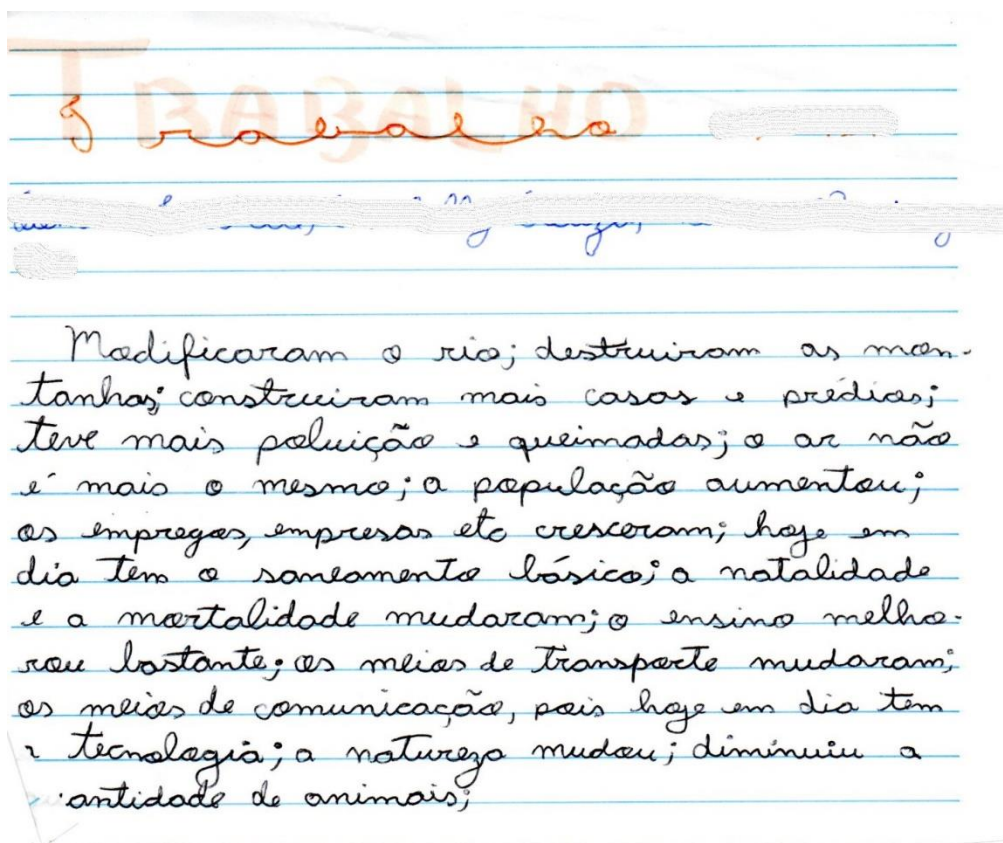 TRABALHO
Trabalho
Modificaram o rio; destruiram as mon-
tanhas; construiram mais casas e prédios;
teve mais poluição e queimadas; o ar não
é mais o mesmo; a população aumentou;
os empregos, empresas etc cresceram; hoje em
dia tem o saneamento básico; a natalidade
e a mortalidade mudaram; o ensino melho-
rou bastante; os meios de transporte mudaram;
os meios de comunicação, pois hoje em dia tem
tecnologia; a natureza mudou; diminuiu a
antidade de animais;